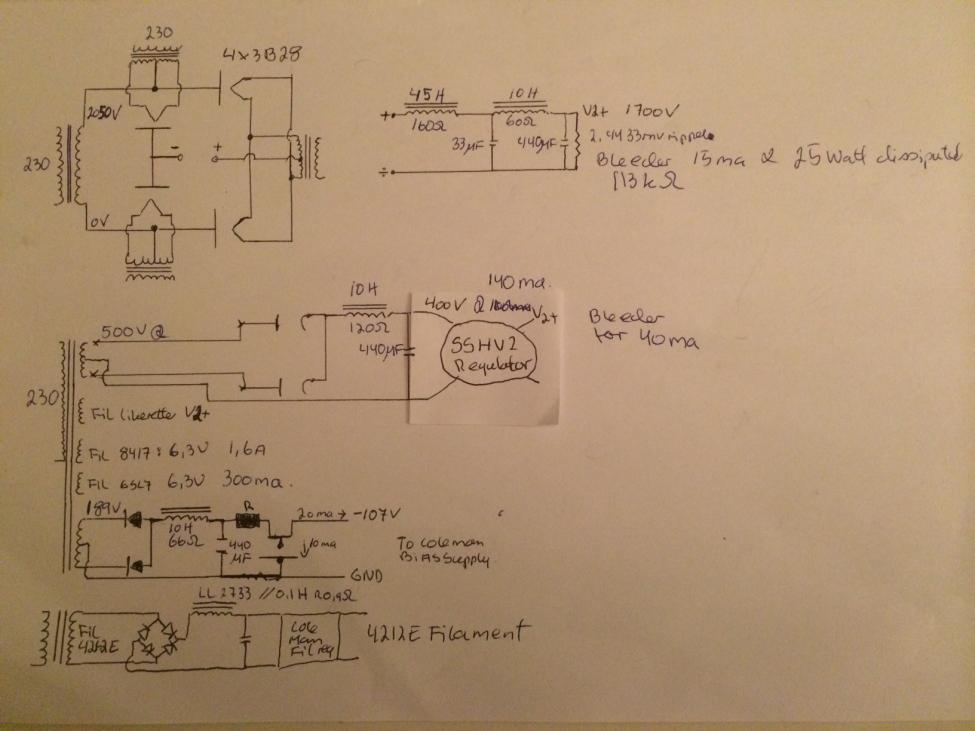 230
4x3B28
2050V
230
+
-
0V
45H
10H
+
160Ω
60Ω
V2+ 1700V
33µF
440µF
2.4H 33mv ripple
Bleeder 15ma & 25 Watt dissipated
113kΩ
÷
10H
140ma.
500V@
400V @
V2+
120Ω
440µF
SSHV2
Regulator
Bleeder
for 40ma
230
Fil likerette V2+
Fil 8417: 6,3V 1,6A
Fil 6SL7 6,3V 300ma.
189V
R
20ma→ -107V
10H
66Ω
440
µF
↓10ma
To Coleman
Bias Supply
GND
LL2733 //0.1H R0,9Ω
Fil
4212E
Cole
Man
Fil reg
4212E Filament